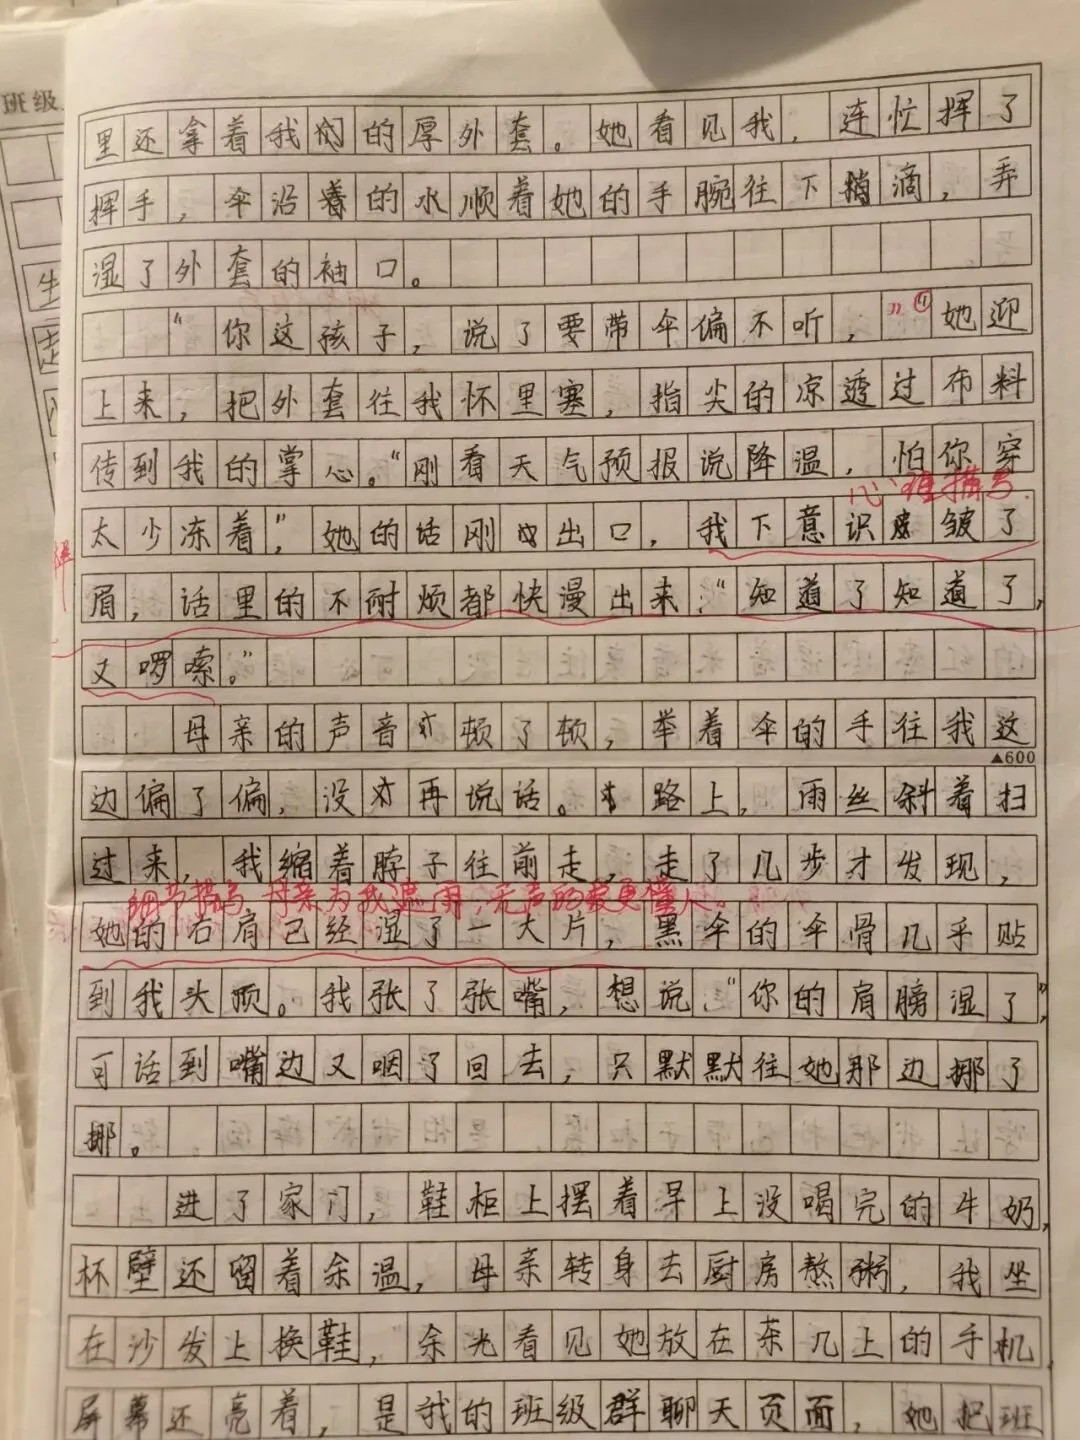 班级
里还拿着我们的厚外套。她看见我，连忙挥了
挥手，伞沿着的水顺着她的手腕往下滴，弄
湿了外套的袖口。
“你这孩子，说了要带伞偏不听，”她迎
上来，把外套往我怀里塞，指尖的凉透过布料
传到我的掌心。“刚看天气预报说降温，怕你穿
心理描写
太少冻着”，她的话刚出口，我下意识皱了
眉，话里的不耐烦都快漫出来，“知道了知道了，
又啰嗦。”
母亲的声音顿了顿，举着伞的手往我这
▲600
边偏了偏，没再说话。路上，雨丝斜着扫
过来，我缩着脖子往前走，走了几步才发现，
细节描写，母亲为我遮雨，无声的爱更懂人。
她的右肩已经湿了一大片，黑伞的伞骨几乎贴
到我头顶。我张了张嘴，想说，“你的肩膀湿了”，
可话到嘴边又咽了回去，只默默往她那边挪了
挪。
进了家门，鞋柜上摆着早上没喝完的牛奶，
杯壁还留着余温，母亲转身去厨房熬粥，我坐
在沙发上换鞋，余光看见她放在茶几上的手机
屏幕还亮着，是我的班级群聊天页面，她把班